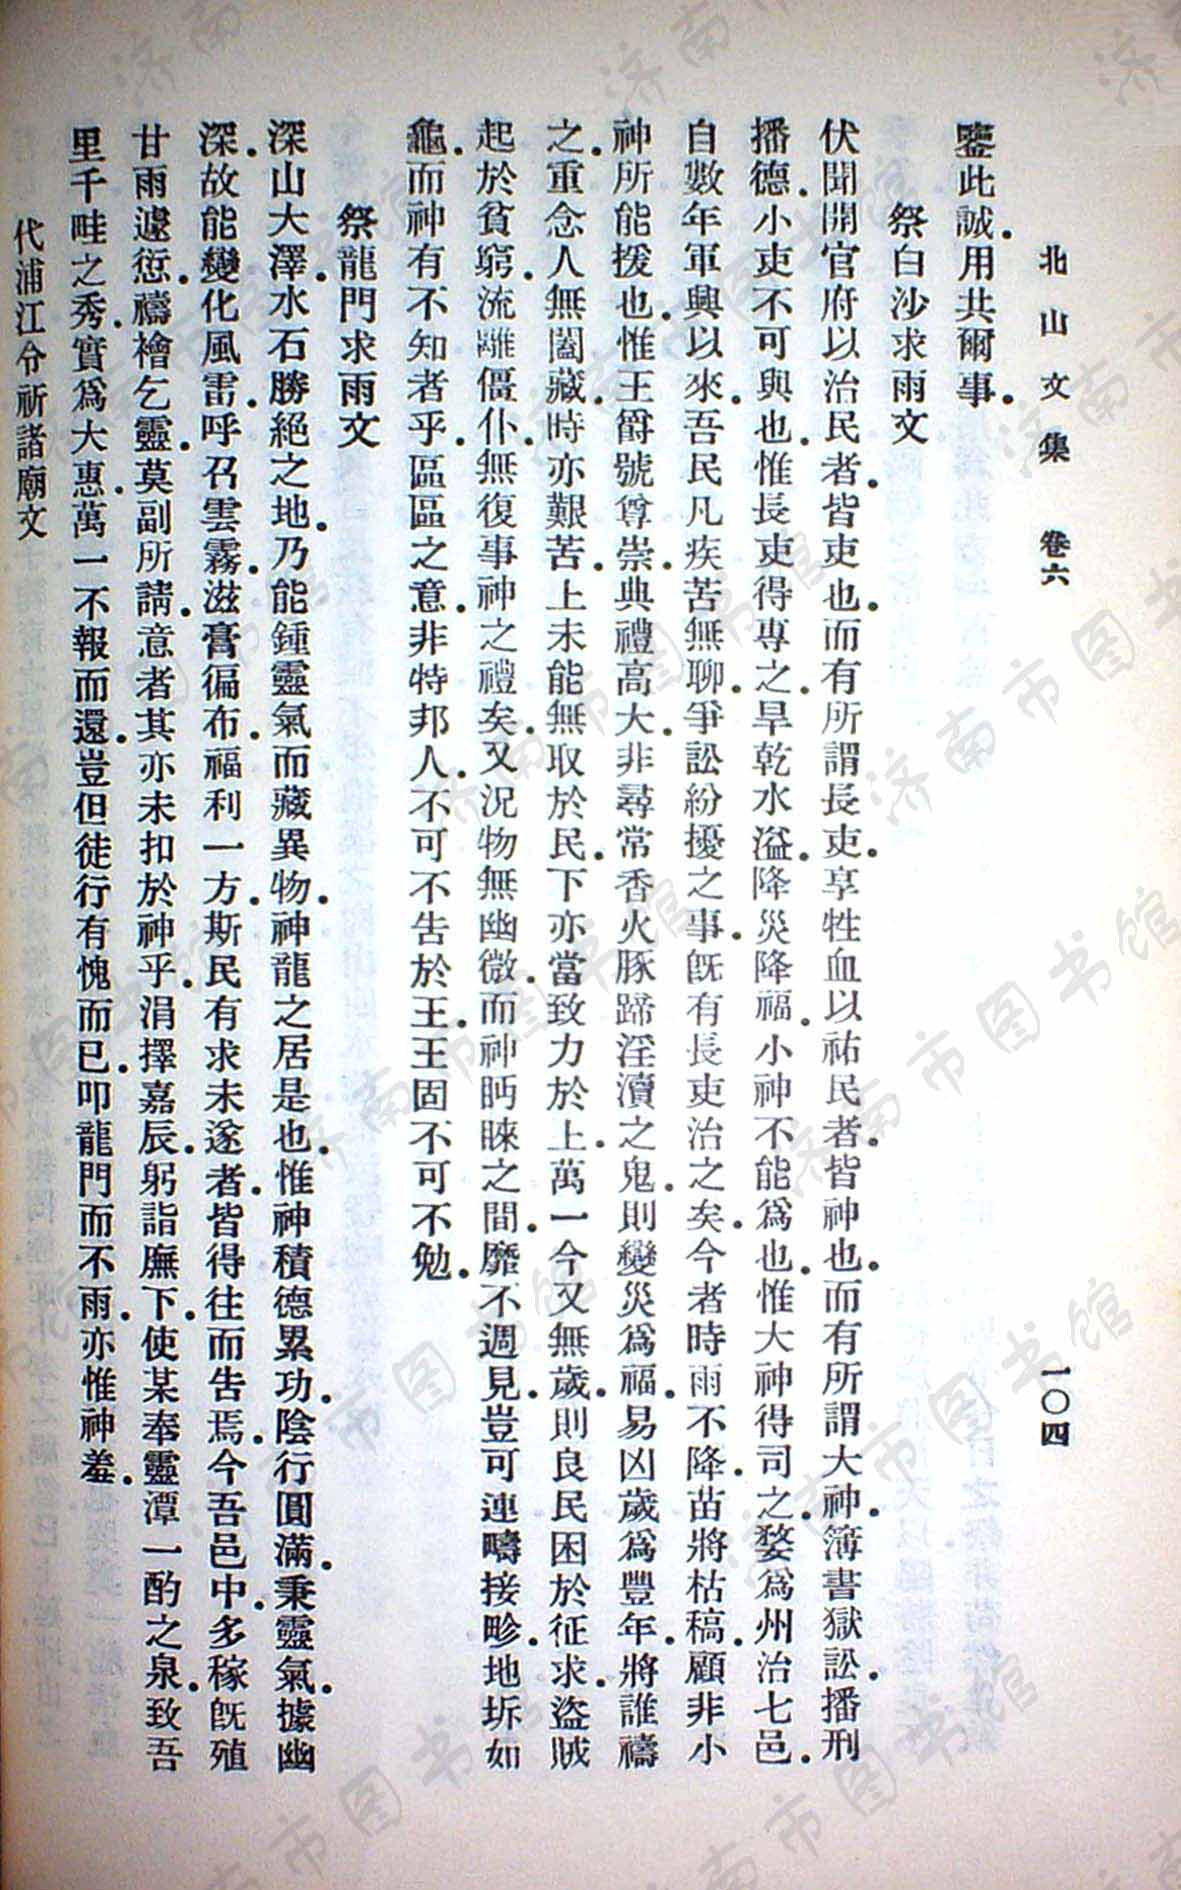 北山文集　卷六　一〇四
鑒此誠．用共爾事．
祭白沙求雨文
伏聞開官府以治民者．皆吏也．而有所謂長吏．享牲血以祐民者．皆神也．而有所謂大神．簿書獄訟．播刑
播德．小吏不可與也．惟長吏得專之．旱乾水溢．降災降福．小神不能爲也．惟大神得司之．婺爲州治七邑．
自數年軍興以來．吾民凡疾苦無聊．爭訟紛擾之事．旣有長吏治之矣．今者時雨不降．苗將枯稿．顧非小
神所能援也．惟王爵號尊崇．典禮高大．非尋常香火豚蹄淫瀆之鬼．則變災爲福．易凶歲爲豐年．將誰禱
之．重念人無闔藏．時亦艱苦．上未能無取於民．下亦當致力於上．萬一今又無歲．則良民困於征求．盜賊
起於貧窮．流離僵仆．無復事神之禮矣．又況物無幽微．而神眄睞之間．靡不週見．豈可連疇接畛．地坼如
龜．而神有不知者乎．區區之意．非特邦人．不可不告於王．王固不可不勉．
祭龍門求雨文
深山大澤．水石勝絕之地．乃能鍾靈氣而藏異物．神龍之居是也．惟神積德累功．陰行圓滿．秉靈氣．據幽
深．故能變化風雷．呼召雲霧．滋膏徧布．福利一方．斯民有求未遂者．皆得往而告焉．今吾邑中．多稼旣殖
甘雨遽愆．禱禬乞靈．莫副所請．意者其亦未扣於神乎．涓擇嘉辰．躬詣廡下．使某奉靈潭一酌之泉．致吾
里千畦之秀．實爲大惠．萬一不報而還．豈但徒行有愧而已．叩龍門而不雨．亦惟神羞．
代浦江令祈諸廟文